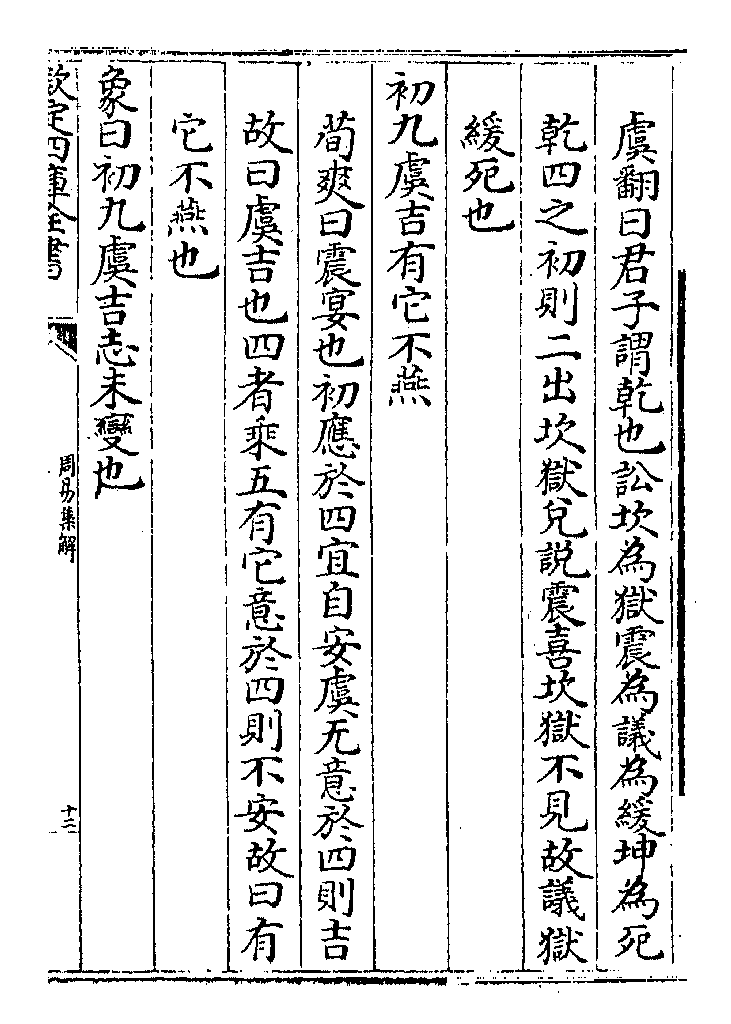 虞翻曰君子謂乾也訟坎為獄震為議為緩坤為死
乾四之初則二出坎獄兌說震喜坎獄不見故議獄
緩死也
初九虞吉有它不燕
荀爽曰震宴也初應於四宜自安虞无意於四則吉
故曰虞吉也四者乘五有它意於四則不安故曰有
它不燕也
象曰初九虞吉志未變也
欽定四庫全書
周易集解
十二